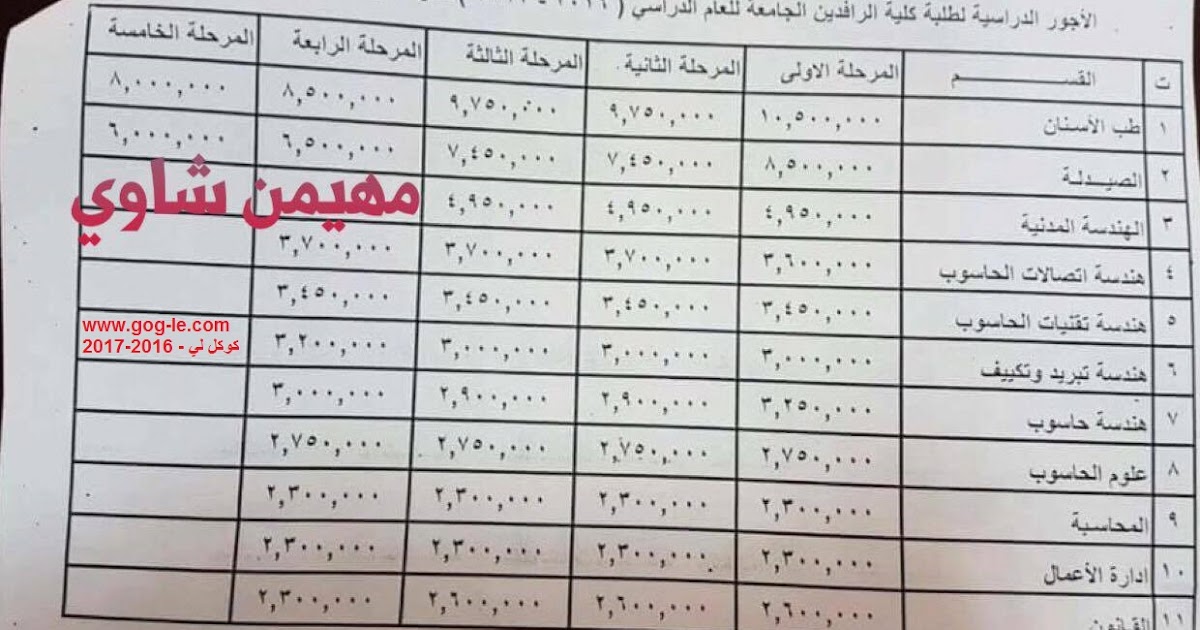 الأجور الدراسية لطلبة كلية الرافدين الجامعة للعام الدراسي
ت القســـم المرحلة الاولى المرحلة الثانية المرحلة الثالثة المرحلة الرابعة المرحلة الخامسة
١ طب الأسنان ١٠,٥٠٠,٠٠٠ ٩,٧٥٠,٠٠٠ ٩,٧٥٠,٠٠٠ ٨,٥٠٠,٠٠٠ ٨,٠٠٠,٠٠٠
٢ الصيـدلـة ٨,٥٠٠,٠٠٠ ٧,٤٥٠,٠٠٠ ٧,٤٥٠,٠٠٠ ٦,٥٠٠,٠٠٠ ٦,٠٠٠,٠٠٠
٣ الهندسة المدنية ٤,٩٥٠,٠٠٠ ٤,٩٥٠,٠٠٠ ٤,٩٥٠,٠٠٠
٤ هندسة اتصالات الحاسوب ٣,٦٠٠,٠٠٠ ٣,٧٠٠,٠٠٠ ٣,٧٠٠,٠٠٠ ٣,٧٠٠,٠٠٠
٥ هندسة تقنيات الحاسوب ٣,٤٥٠,٠٠٠ ٣,٤٥٠,٠٠٠ ٣,٤٥٠,٠٠٠ ٣,٤٥٠,٠٠٠
٦ هندسة تبريد وتكييف ٣,٠٠٠,٠٠٠ ٣,٠٠٠,٠٠٠ ٣,٠٠٠,٠٠٠ ٣,٢٠٠,٠٠٠
٧ هندسة حاسوب ٣,٢٥٠,٠٠٠ ٢,٩٠٠,٠٠٠ ٢,٩٠٠,٠٠٠ ٣,٠٠٠,٠٠٠
٨ علوم الحاسوب ٢,٧٥٠,٠٠٠ ٢,٧٥٠,٠٠٠ ٢,٧٥٠,٠٠٠ ٢,٧٥٠,٠٠٠
٩ المحاسبة ٢,٣٠٠,٠٠٠ ٢,٣٠٠,٠٠٠ ٢,٣٠٠,٠٠٠ ٢,٣٠٠,٠٠٠
١٠ ادارة الأعمال ٢,٣٠٠,٠٠٠ ٢,٣٠٠,٠٠٠ ٢,٣٠٠,٠٠٠ ٢,٣٠٠,٠٠٠
١١ القـانون ٢,٦٠٠,٠٠٠ ٢,٦٠٠,٠٠٠ ٢,٦٠٠,٠٠٠ ٢,٣٠٠,٠٠٠
مهيمن شاوي
www.gog-le.com
كوكل لي - 2016-2017